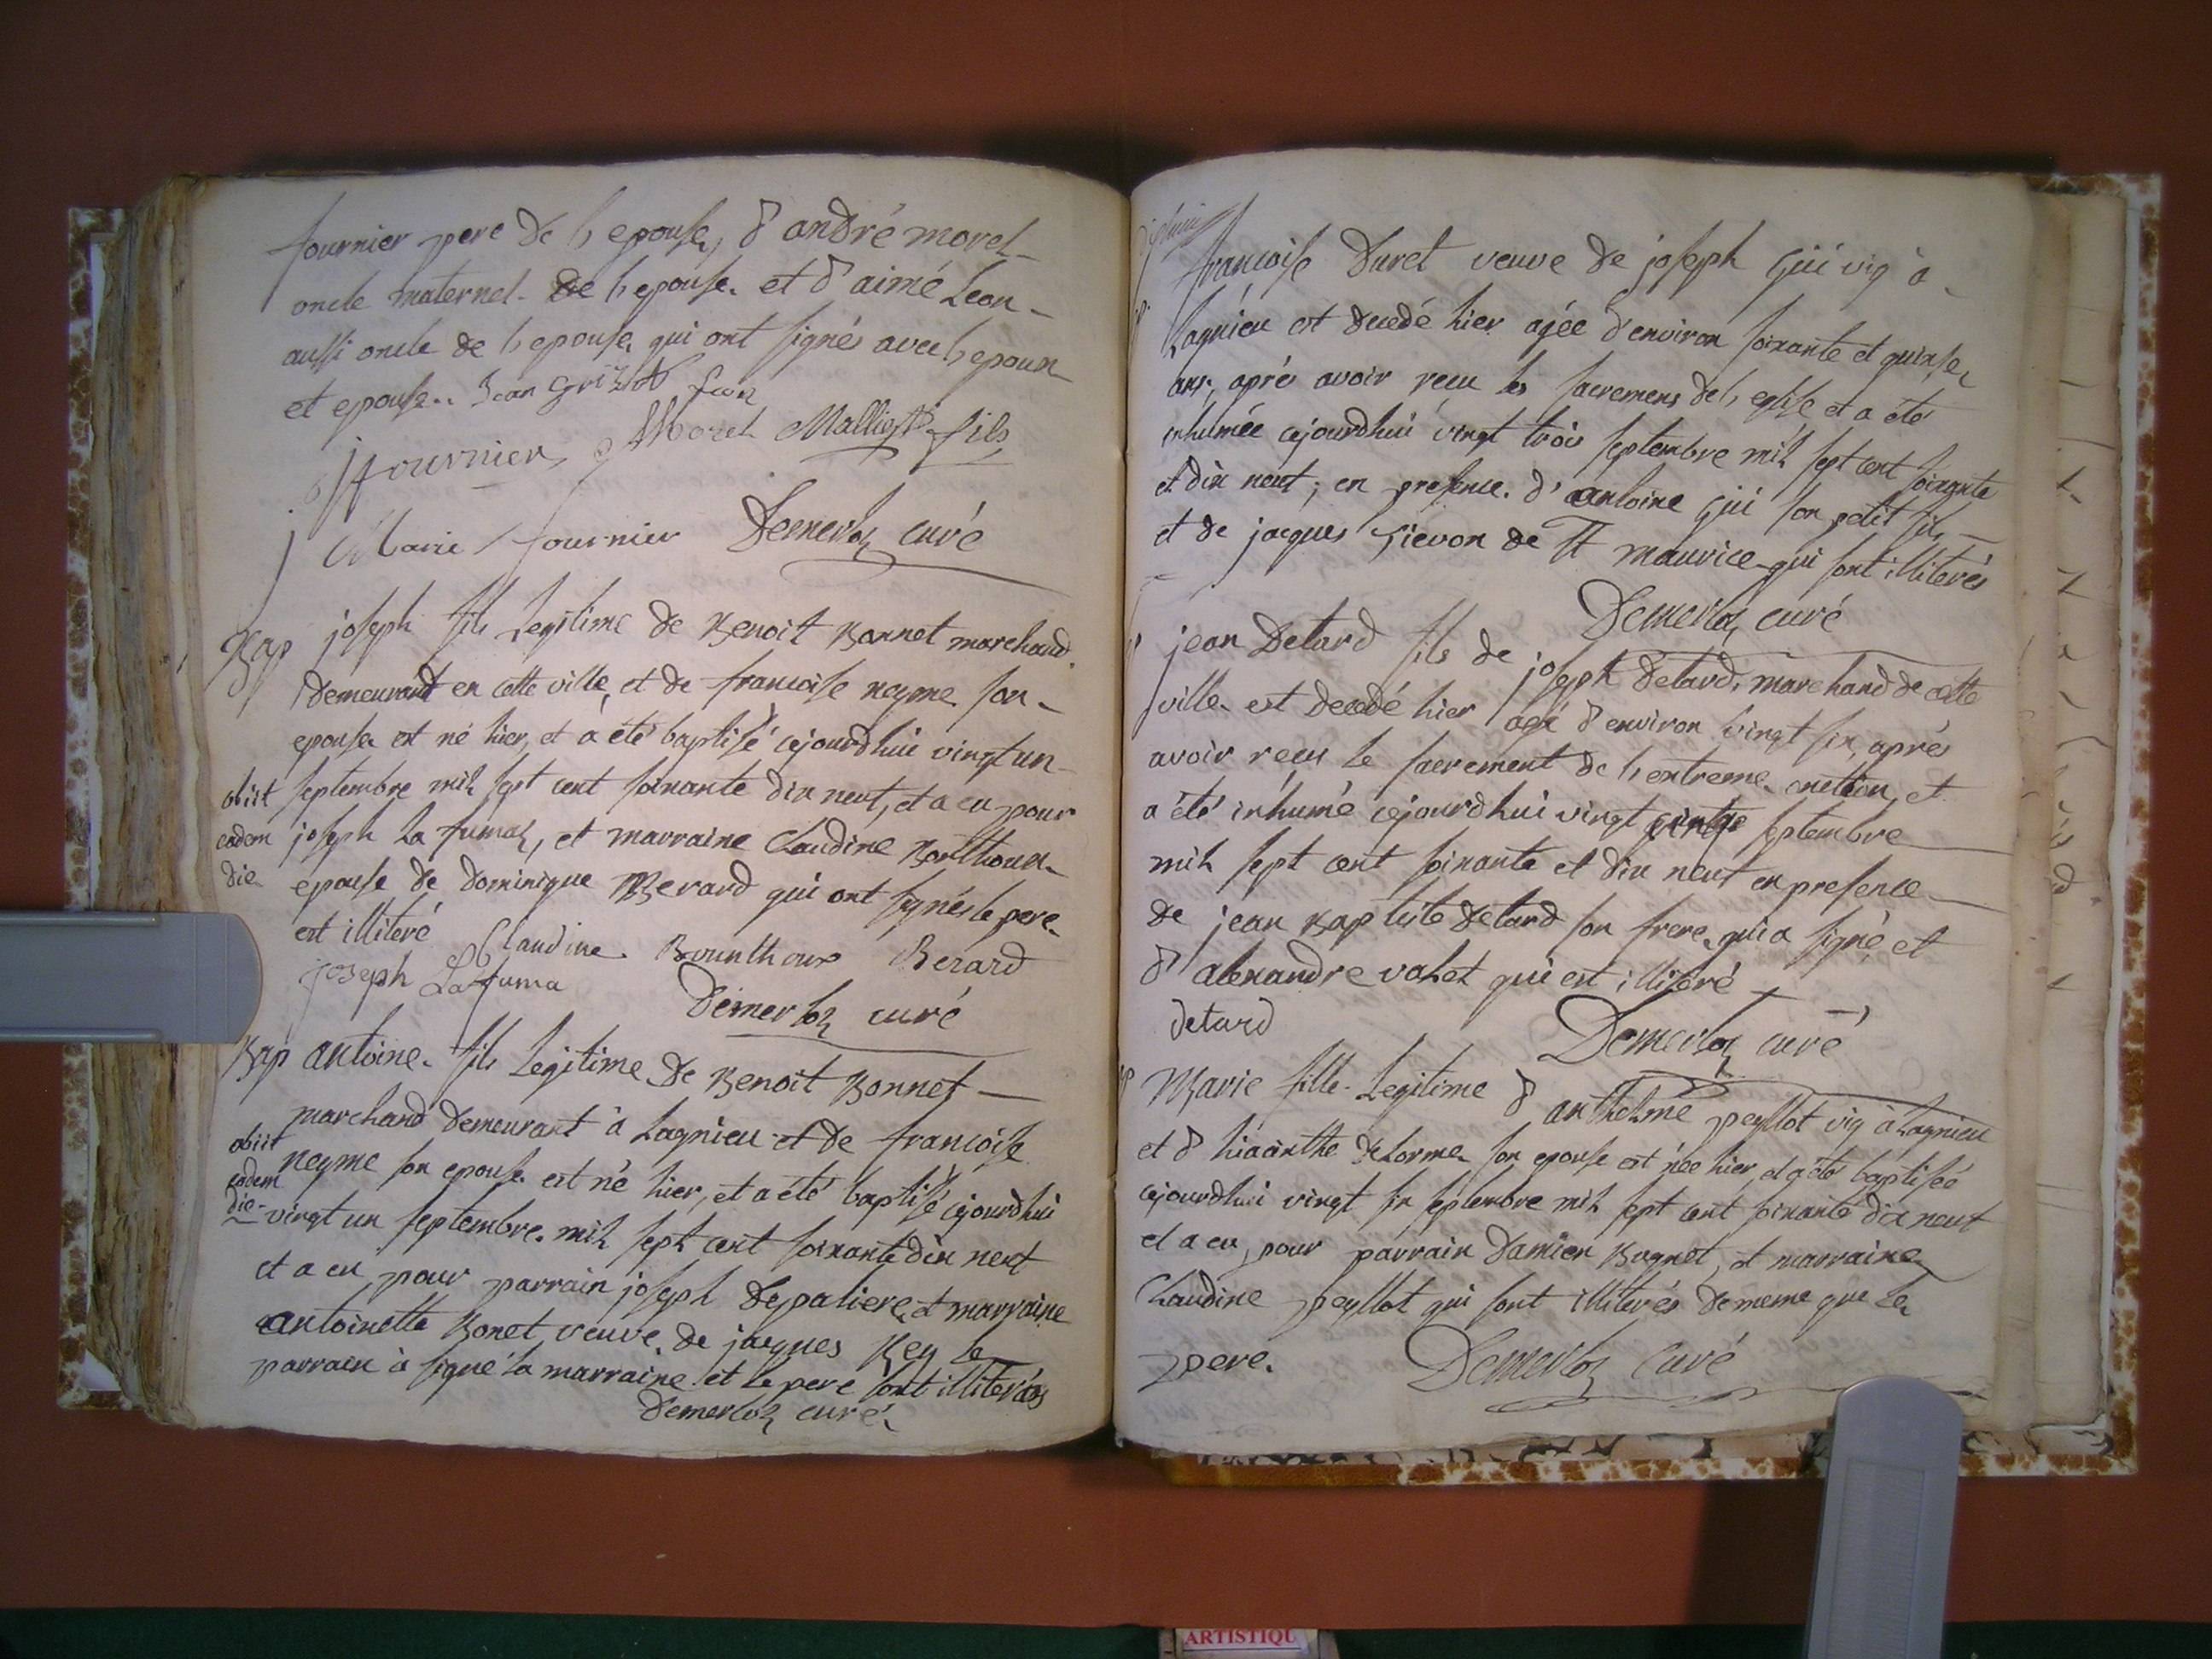 fournier pere de l'epouse, d'andré morel
oncle maternel de l'epouse et d'aimé Leon
aussi oncle de l'epouse qui ont signés avec l'epoux
et epouse. Jean
ffournier Morel fils
Marie fournier Demerloz curé
Bap joseph fils Legitime de Benoit Bonnet marchand
demeurant en cette ville, et de francoise neyme son
epouse est né hier, et a été baptisé cejourdhui vingt un
obiit septembre mil sept cent soixante dix neuf, et a eu pour
eadem joseph La fumaz, et marraine Claudine Bonthoux
die epouse de dominique Berard qui ont signés le pere
est illiteré
Claudine Bounthoux Berard
joseph Lafuma
Demerloz curé
Bap antoine fils Legitime de Benoit Bonnet
marchand demeurant à Lagnieu et de francoise
obiit neyme son epouse est né hier, et a été baptisé cejourdhui
eadem
die vingt un septembre mil sept cent soixante dix neuf
et a eu pour parrain joseph Depaliere et marraine
antoinette Bonet veuve de jacques Rey le
parrain à signé la marraine et le pere sont illiterés
Demerloz curé
francoise Duret veuve de joseph Gui vig à
Lagnieu est decedé hier agée d'environ soixante et quinse
ans, aprés avoir recu les sacremens de l'eglise et a été
inhumée cejourdhui vingt trois septembre mil sept cent soixante
et dix neuf, en presence d'antoine Gui son petit fils
et de jacques Sievon de St maurice qui sont illiterés
Demerloz curé
jean Detard fils de joseph Detard, marchand de cette
ville est decedé hier agé d'environ vingt six, aprés
avoir recu le sacrement de l'extreme onction, et
a été inhumé cejourdhui vingt septembre
mil sept cent soixante et dix neuf en presence
de jean Baptiste Detard son frere qui a signé, et
d'alexandre valet qui est illiteré
detard Demerloz curé
Marie fille Legitime d'anthelme peyllot vig à Lagnieu
et d'hiacinthe delorme son epouse est née hier, et a été baptisée
cejourdhui vingt six septembre mil sept cent soixante dix neuf
et a eu pour parrain Damien Bugnet, et marraine
Claudine peyllot qui sont illiterés de meme que le
pere. Demerloz Curé
ARTISTIQU